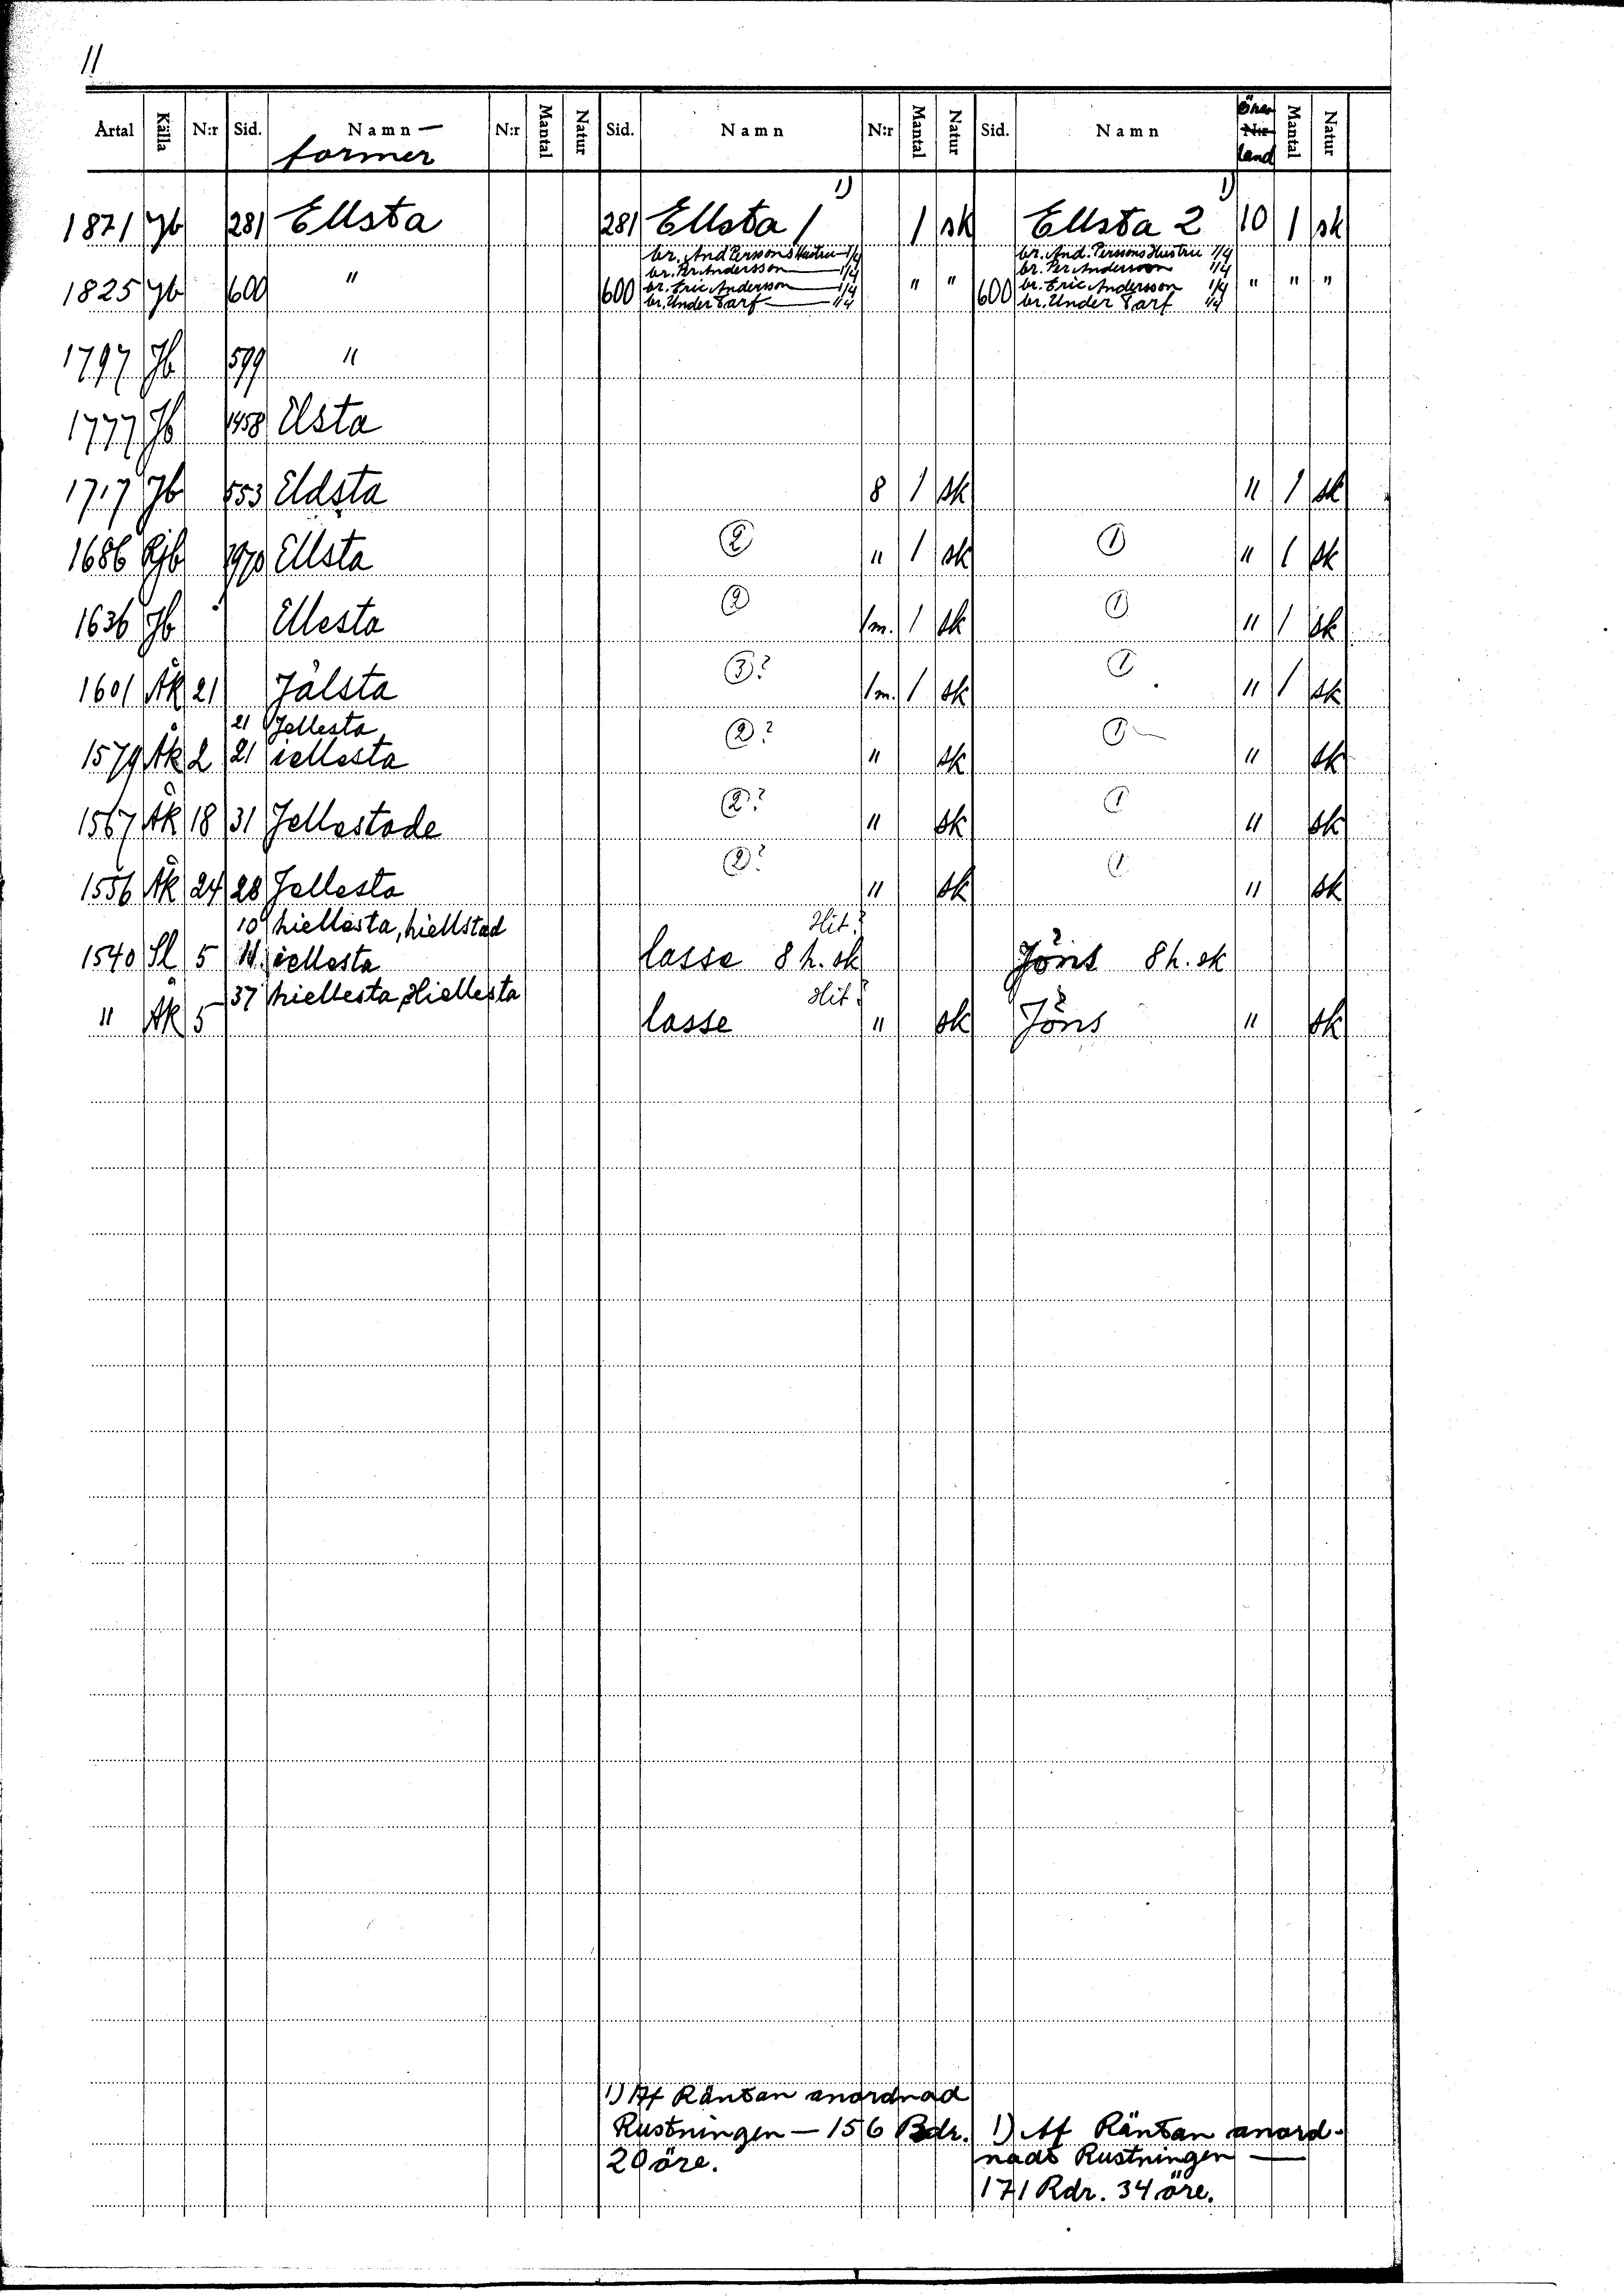 11
Årtal Källa N:r Sid. Namn — former N:r Mantal Natur Sid. Namn N:r Mantal Natur Sid. Namn N:r land Mantal Natur
1871 Jb 281 Ellsta 281 Ellsta 1 1) 1 sk Ellsta 2 1) 10 1 sk
br. And Perssons Hustru 1/4 br. And. Perssons Hustru 1/4
br. Per Andersson 1/4 br. Per Andersson 1/4
1825 Jb 600 " 600 br. Eric Andersson 1/4 " " 600 br. Eric Andersson 1/4 " " "
br. Under Tarf 1/4 br. Under Tarf 1/4
1797 Jb 599 "
1777 Jb 1458 Elsta
1717 Jb 553 Eldsta 8 1 sk " 1 sk
1686 Rjb 1970 Ellsta 2 " 1 sk 1 " 1 sk
1636 Jb Ellesta 2 1m. 1 sk 1 " 1 sk
1601 Åk 21 Jälsta 3? 1m. 1 sk 1 " 1 sk
21 Jellesta
1579 Åk 2 21 iellesta 2? " sk 1 " sk
1567 Åk 18 31 Jellestade 2? " sk 1 " sk
1556 Åk 24 28 Jellesta 2? " sk 1 " sk
10 hiellesta, hiellstad Hit?
1540 Sl 5 11 iellesta lasse 8 h. sk Jöns 8 h. sk
37 hiellesta, Hiellesta Hit?
" Åk 5 lasse " sk Jöns " sk
1) Af Räntan anordnad
Rustningen — 156 Rdr.
20 öre.
1) Af Räntan anord-
nads Rustningen —
171 Rdr. 34 öre.